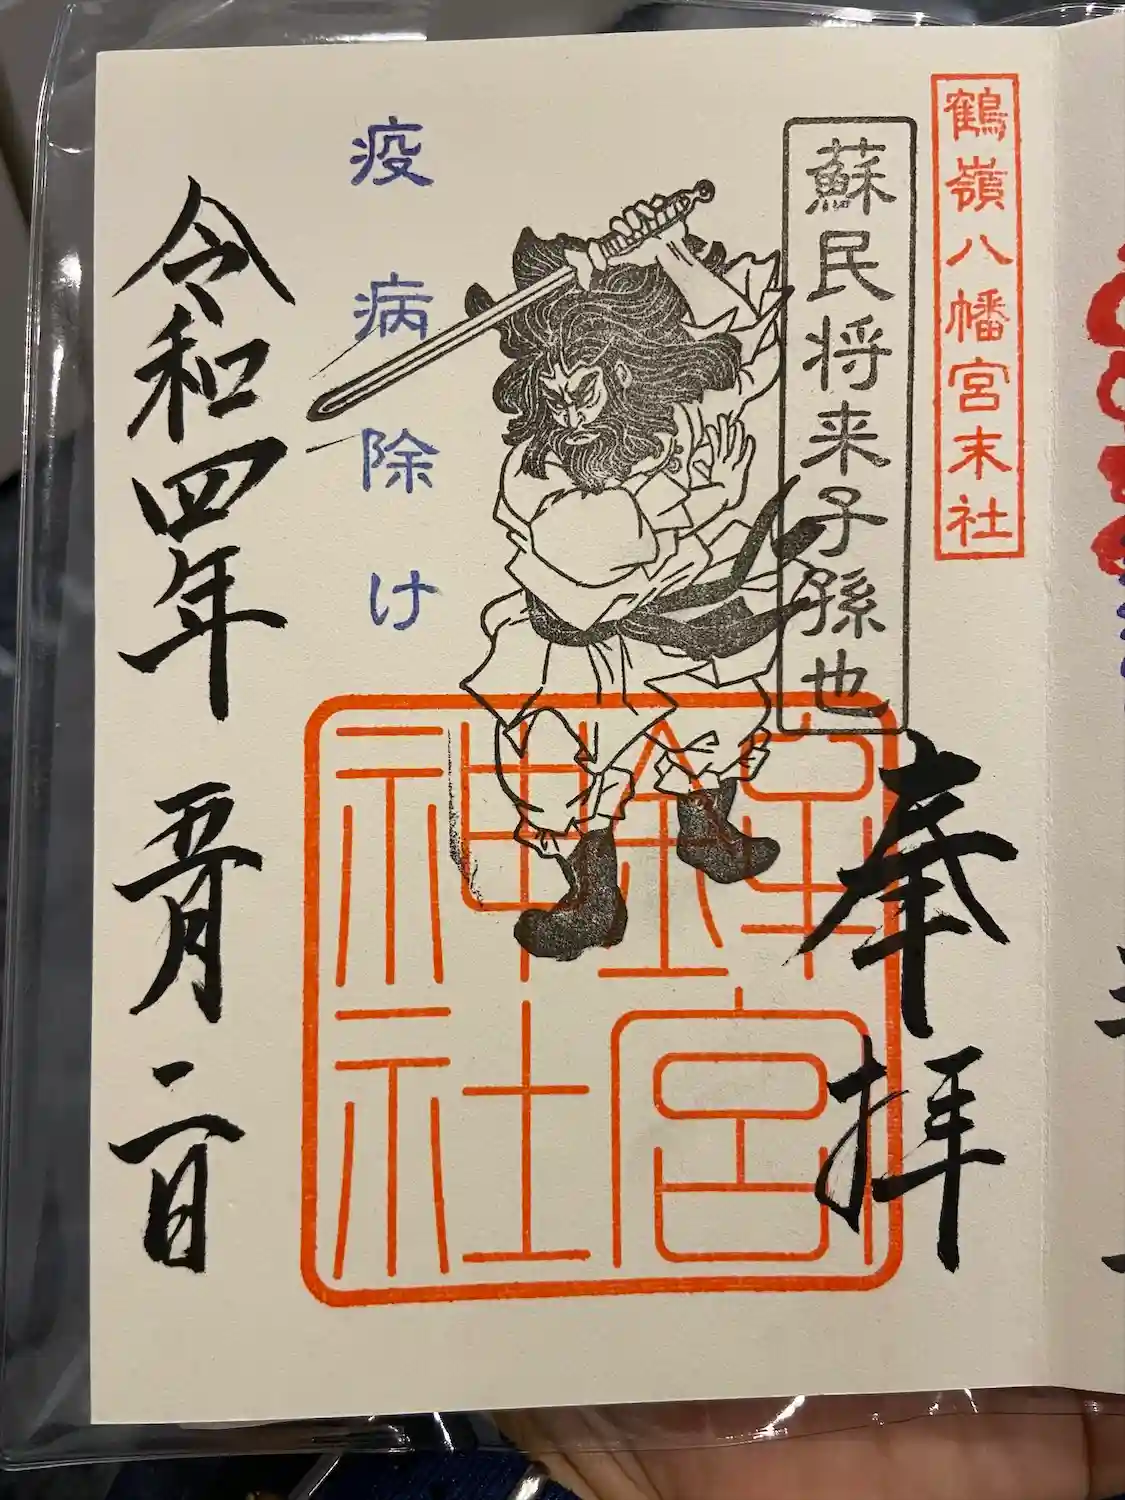 鶴嶺八幡宮末社
蘇民将来子孫也
奉拝
鉾宮
神社
疫病除け
令和四年五月二日